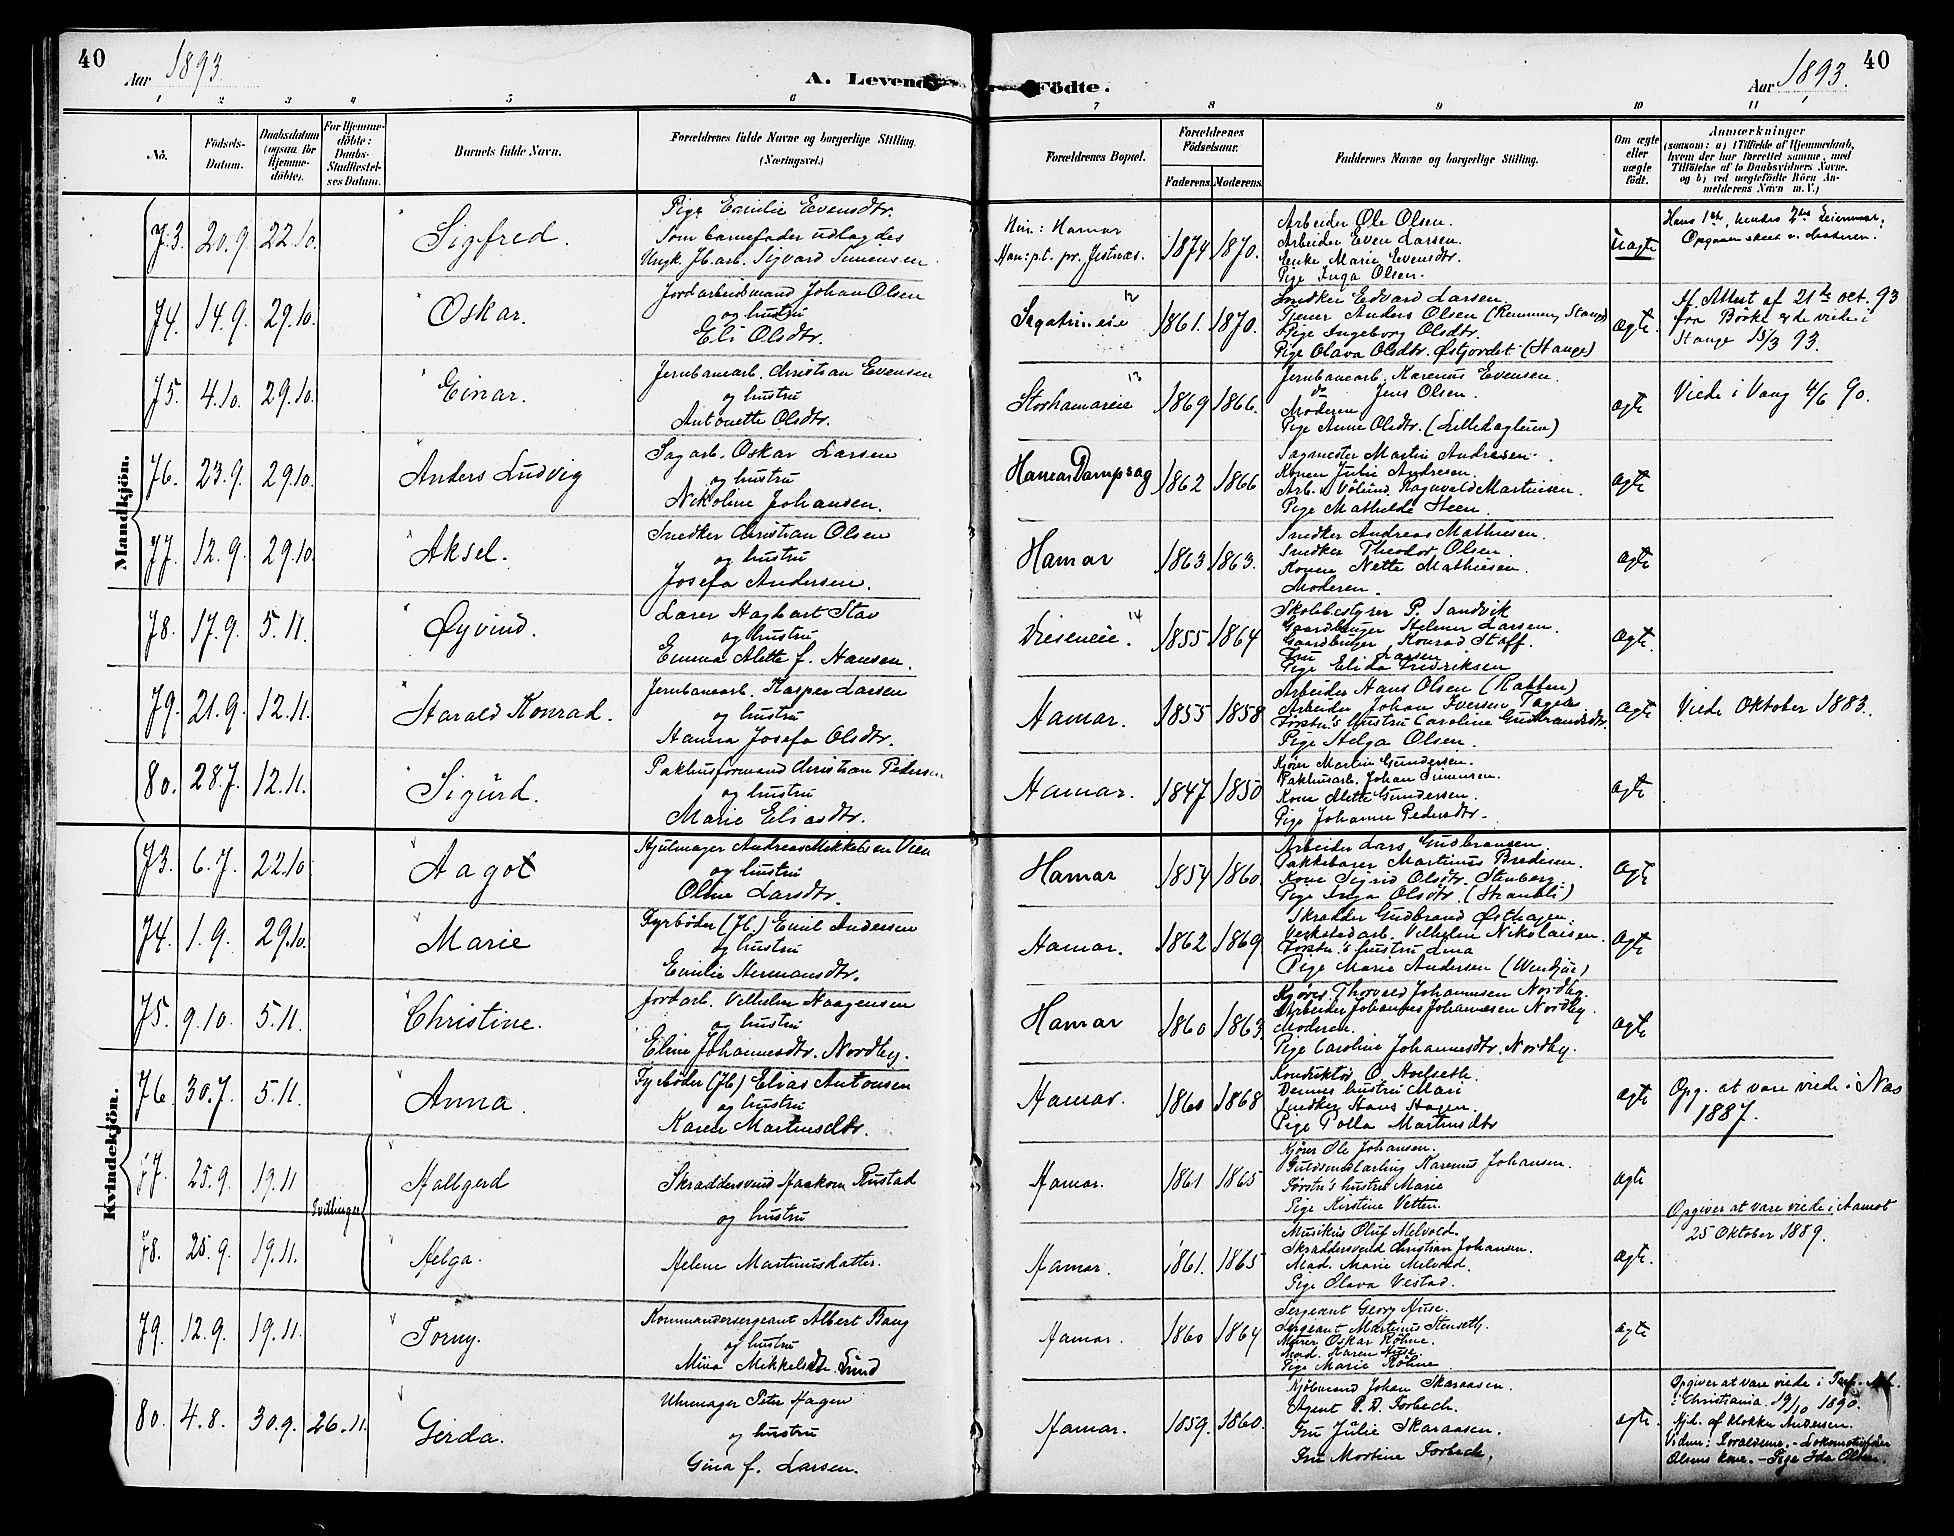 40
Aar 1893.
A. Levende
Födte.
Aar 1893.
40
1 2 3 4 5 6 7 8 9 10 11
No.
Födsels-Datum.
Daabsdatum (ogsaa for Hjemme-döbte).
For Hjemme-döbte: Daabs-Stadfæstel-ses Datum.
Barnets fulde Navn.
Forældrenes fulde Navne og borgerlige Stilling.
(Næringsvei.)
Forældrenes Bopæl.
Forældrenes Födselsaar.
Faderens. Moderens.
Faddernes Navne og borgerlige Stilling.
Om ægte eller uægte födt.
Anmærkninger
(saasom: a) i Tilfælde af Hjemmedaab, hvem der har forrettet samme, med Tilföielse af to Daabsvidners Navne, og b) ved uægtefödte Börn An-melderens Navn m. V.)
Mandkjön.
73. 20.9 22.10. Sigfred.
Pige Emilie Evensdtr.
som barnefader udlagdes
Ungk. Jb.arb. Sigvard Simensen
Hun: Hamar
Han: p.t. pr. Jestnæs.
1874 1870.
Arbeider Ole Olsen.
Arbeider Even Larsen.
Enke Marie Evensdtr.
Pige Inga Olsen.
uægte
Hans 1ste, hendes 2det Leiermaal;
Opgaven skeet v. Moderen.
74. 14.9. 29.10. Oskar.
Jordarbeidsmand Johan Olsen
og hustru
Eli Olsdtr.
12
Sagatuneie
1861. 1870.
Snedker Edvard Larsen.
Tjener Anders Olsen (Rommen, Stange)
Pige Ingeborg Olsdtr.
Pige Olava Olsdtr. Østjordet (Stange)
ægte.
Jf. Attest af 21de oct. 93
fra Börke ere de viede i
Stange 15/3 93.
75. 4.10. 29.10. Einar.
Jernbanearb. Christian Evensen
og hustru
Antonette Olsdtr.
13
Storhamareie
1869 1866.
Jernbanearb. Karenus Evensen.
do Jens Olsen.
Moderen
Pige Anne Olsdtr. (Lilledagluen)
ægte
Viede i Vang 4/6 90.
76. 23.9. 29.10. Anders Ludvig
Sagarb. Oskar Larsen
og hustru
Nikoline Johansen.
Hamar Dampsag
1862 1866
Sagmester Martin Andresen.
Konen Julie Andresen.
Arb. v. Vølund Ragnvald Martinsen.
Pige Mathilde Steen.
ægte
77. 12.9. 29.10. Aksel.
Snedker Christian Olsen
og hustru
Josefa Andersen.
Hamar
1863 1863.
Snedker Andreas Mathiesen.
Snedker Theodor Olsen.
Konen Nette Mathiesen.
Moderen.
ægte
78. 17.9. 5.11. Øyvind.
Lærer Hagbart Stav
og hustru
Emma Alette f. Hansen.
14
Vieseneie.
1855 1864
Skolebestyrer P. Sandvik
Gaardbruger Helmer Larsen.
Gaardbruger Konrad Staff.
Fru Larsen
Pige Elida Fredriksen
ægte.
79. 21.9. 12.11. Harald Konrad.
Jernbanearb. Kasper Larsen
og hustru
Hanna Josefa Olsdtr.
Hamar.
1855 1858
Arbeider Hans Olsen (Rabben)
Arbeider Johan Iversen
Førstn's hustru Caroline Gudbrandsdtr.
Pige Helga Olsen.
ægte
Viede Oktober 1883.
80. 28.7. 12.11. Sigurd.
Pakhusformand Christian Pedersen
og hustru
Marie Eliasdtr.
Hamar.
1847 1850
Kjører Martin Gundersen.
Pakhusarb. Johan Simensen.
Kone Mette Gundersen.
Pige Johanne Pedersdtr.
ægte
Kvindekjön.
73. 6.7. 22.10 Aagot
Hjulmager Andreas Mikkelsen Vien
og hustru
Oline Larsdtr.
Hamar
1854 1860.
Arbeider Lars Gudbransen.
Pakkebærer Martinus Bredesen.
Kone Sigrid Olsdtr. Stenberg.
Pige Inga Olsdtr. (Strandli)
ægte
74. 1.9. 29.10. Marie
Fyrbøder (Jb.) Emil Andersen
og hustru
Emilie Hermansdtr.
Hamar.
1862 1869
Skrædder Gudbrand Østhagen.
Verkstedarb. Vilhelm Nikolaisen.
Førstn's hustru Lina
Pige Marie Andersen
ægte
75. 9.10. 5.11. Christine.
Jordarb. Vilhelm Haagensen
og hustru
Eline Johannesdtr. Nordby.
Hamar
1860 1863.
Kjører Thorvald Johannesen Nordby.
Arbeider Johannes Johannesen Nordby.
Moderen.
Pige Caroline Johannesdtr. Nordby.
ægte
76. 30.7. 5.11. Anna.
Fyrbøder (Jb) Elias Antonsen
og hustru
Karen Martinsdtr.
Hamar.
1860 1868
Konduktør O. Hvelseth.
Dennes hustru Mari
Snedker Hans Hagen.
Pige Polla Martinsdtr
ægte
Opg. at være viede i Næs
1887.
77. 25.9. 19.11 Tvillinger Hallgerd
Skræddersvend Haakon Rustad
og hustru
Hamar.
1861 1865
Kjører Ole Johansen.
Guldsmedlærling Karenus Johansen.
Førstn's hustru Marie
Pige Kirstine Vetten.
ægte
Opgiver at være viede i Aamot
25 Oktober 1889.
78. 25.9. 19.11. Helga.
Helene Martinusdatter.
Hamar.
1861. 1865
Musikus Oluf Melvold.
Skræddersvend Christian Johansen.
Mad. Marie Melvold.
Pige Olava Vestad.
ægte.
79. 12.9. 19.11. Torny.
Kommandersergeant Albert Bang
og hustru
Mina Mikkelsdtr. Lund
Hamar.
1860 1864
Sergeant Georg Huse.
Sergeant Martinus Stenseth.
Murer Oskar Røhne.
Mad. Karen Huse.
Pige Marie Røhne
ægte
80. 4.8. 30.9. 26.11. Gerda.
Uhrmager Peter Hagen
og hustru
Gina f. Larsen.
Hamar.
1859. 1860.
Kjøbmand Johan Skaraasen.
Agent P. D. Torbech.
Fru Julie Skaraasen
Fru Martine Torbech.
ægte.
Opgiver at være viede i
i Christiania. 19/10 1890.
Hjd. af klokker Andersen.
Vidner: Forældrene. – Lokomotivfører
Olsens kone. – Pige Ida Olsen.